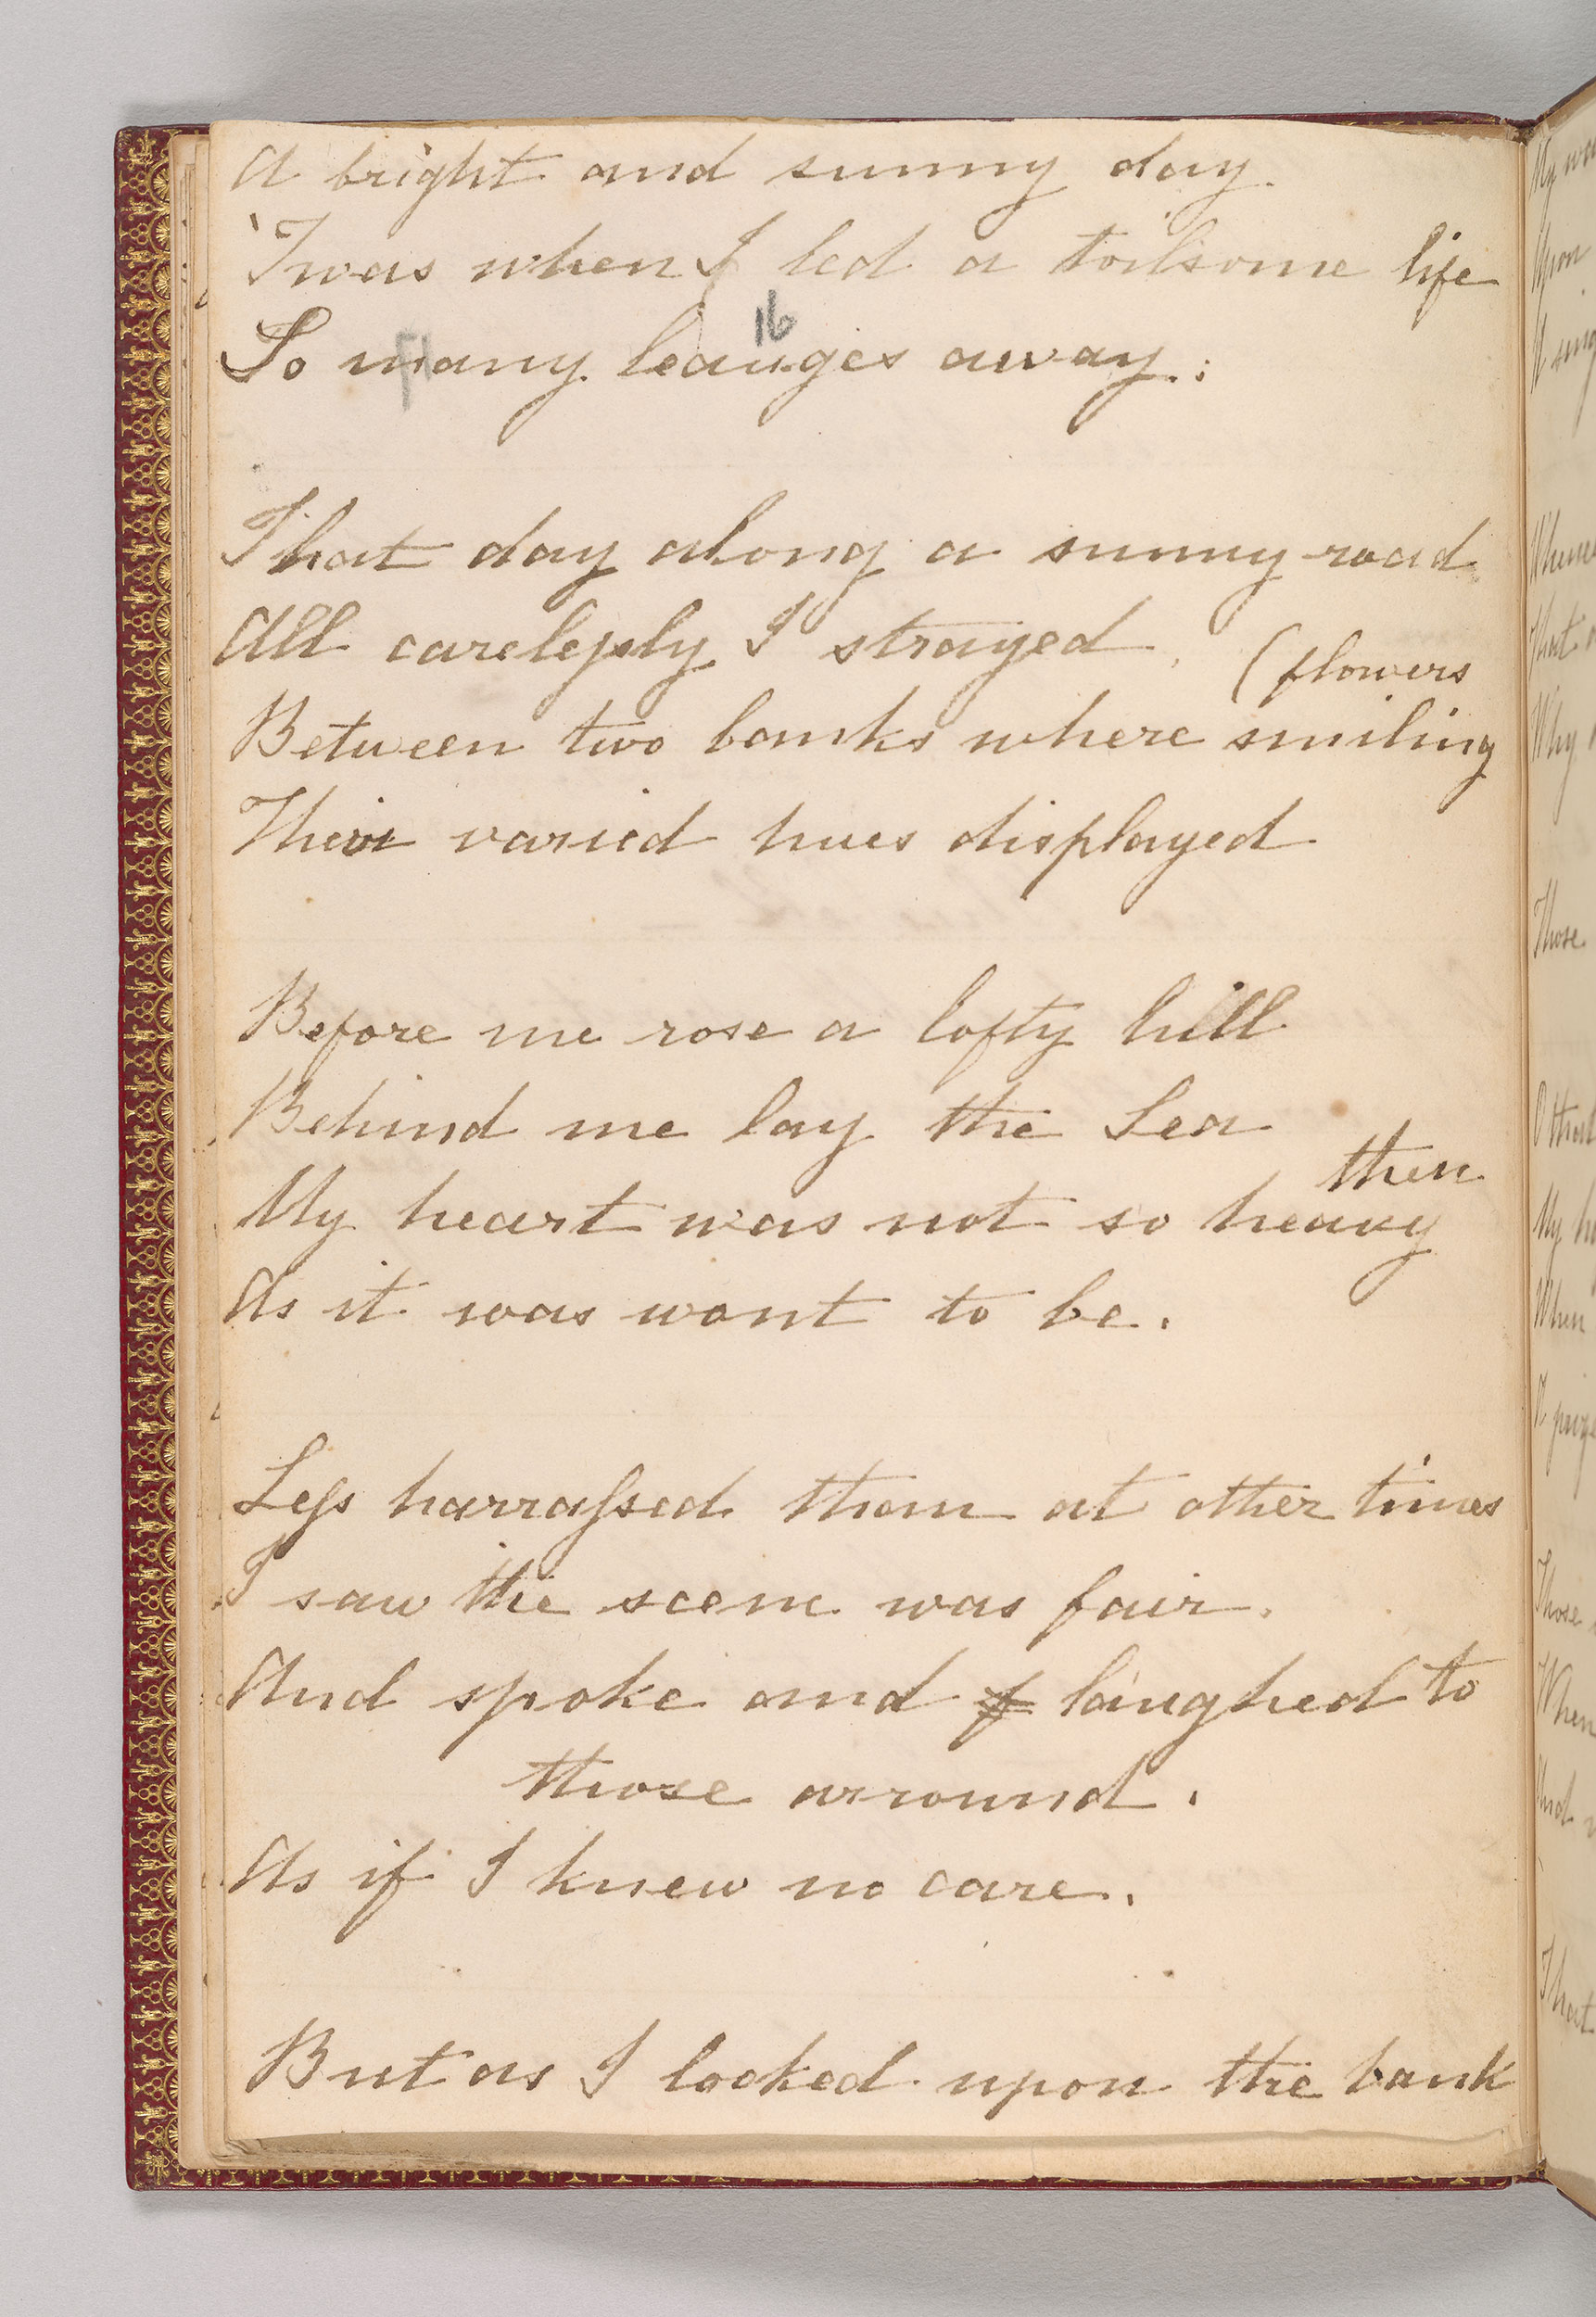 A bright and sunny day
'Twas when I led a toilsome life
16
So many leauges away :
That day along a sunny road
All carelessly I strayed
(flowers
Between two banks where smiling
Their varied hues displayed
Before me rose a lofty hill
Behind me lay the Sea
then
My heart was not so heavy
As it was wont to be.
Less harrassed than at other times
I saw the scene was fair.
And spoke and laughed to
those arround.
As if I knew no care.
But as I looked upon the bank
My
Upon
Those
When
That